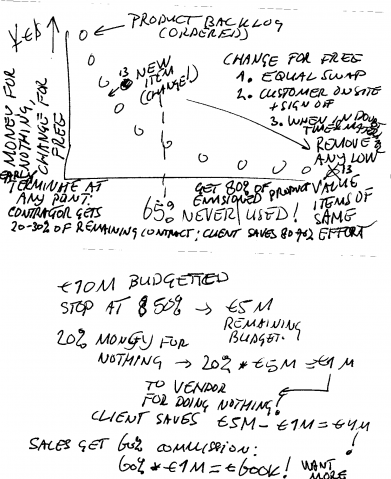 ¥€$
PRODUCT BACKLOG
(ORDERED)
MONEY FOR
NOTHING,
CHANGE FOR
FREE
13 NEW
ITEM
(CHANGE!)
CHANGE FOR FREE
1. EQUAL SWAP
2. CUSTOMER ONSITE
+ SIGN OFF
3. WHEN IN DOUBT
REMOVE
ANY LOW
13
VALUE
ITEMS OF
SAME
EFFORT
EARLY
TERMINATE AT
ANY POINT:
CONTRACTOR GETS
20-30% OF REMAINING CONTRACT; CLIENT SAVES
GET 80% OF
ENVISIONED PRODUCT
65% NEVER USED!
€10M BUDGETTED
STOP AT 50% → €5M
REMAINING
BUDGET.
20% MONEY FOR
NOTHING → 20% * €5M = €1M
TO VENDOR
FOR DOING NOTHING!
CLIENT SAVES €5M - €1M = €4M!
SALES GET 60% COMMISSION:
60% * €1M = €600K! WANT
MORE